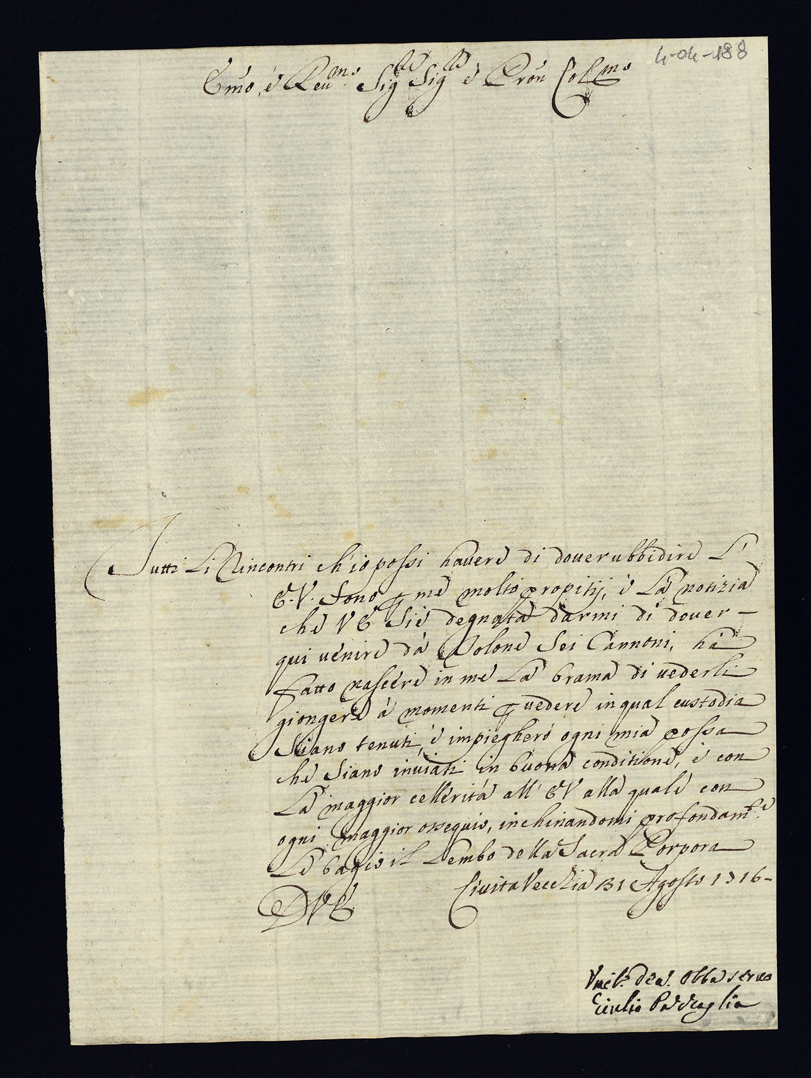 4-04-188
Emo, è Reu.mo Sig.re Sig.re è Pron Col.mo
Tutti Li Rincontri ch'io possi hauere di douer ubbidire L'
E.V. sono p me molto propitij, è La notizia
che VE si è degnata darmi di douer -
qui uenire da Bolone Sei Cannoni, ha
fatto nascere in me La brama di uederli
giongere a momenti p uedere in qual custodia
siano tenuti, è impiegherò ogni mia possa
che siano inuiati in buona conditione, è con
La maggior cellerità all' EV alla quale con
ogni maggior ossequio, inchinandomi profondam.te
Le bagio il Lembo della Sacra Porpora
DVE Ciuita Vecchia 31 Agosto 1716-
Vmil.o deu. Obb.o seruo
Giulio Pazzaglia